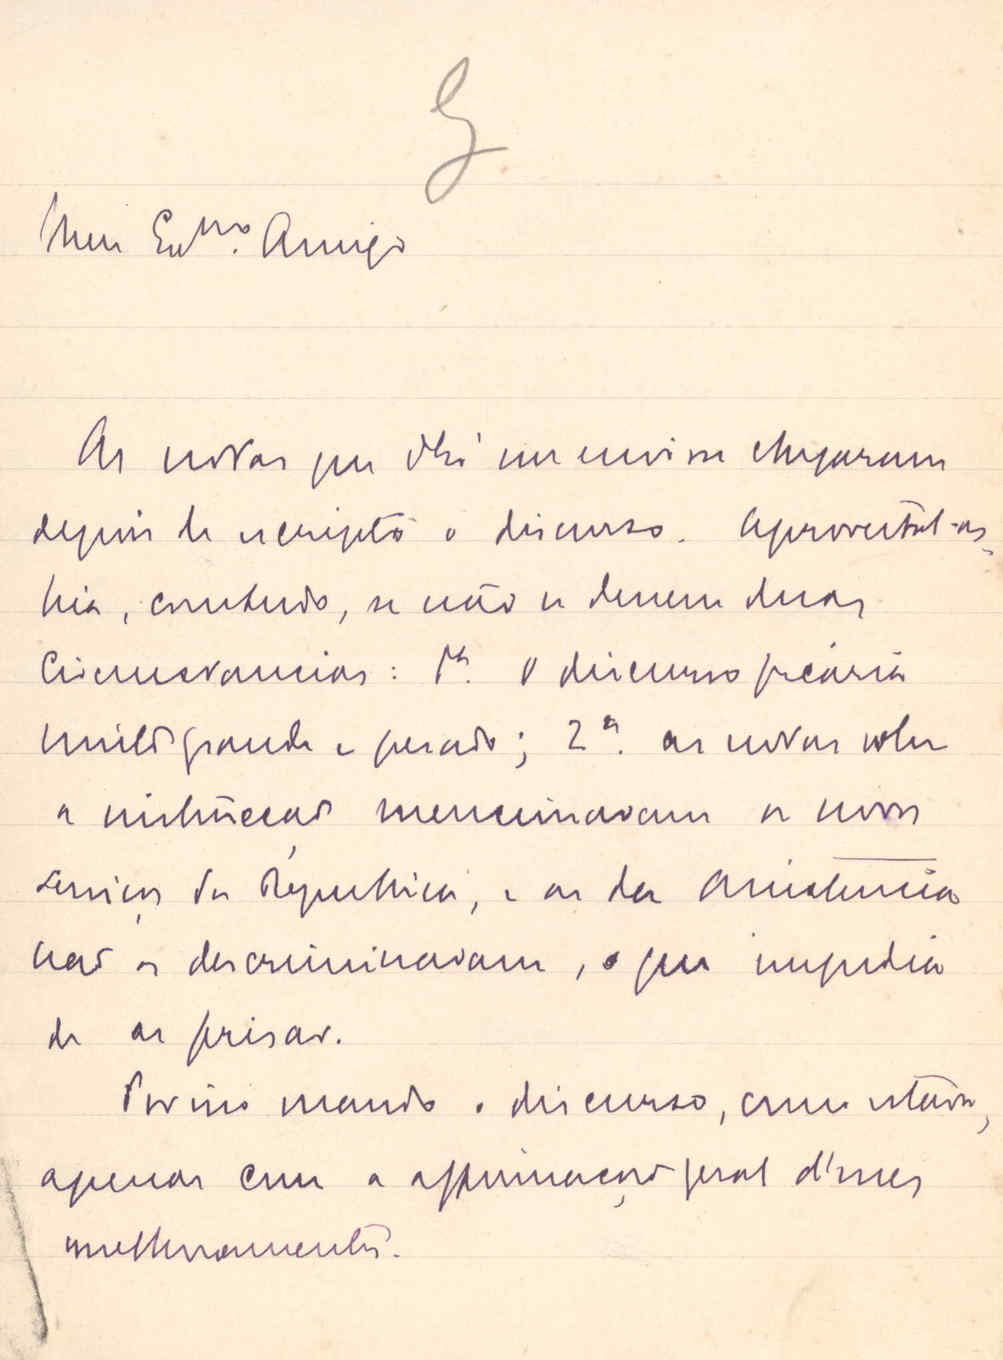 Meu Exmo. Amigo
As notas que me enviou chegaram
depois de escripto o discurso. Aproveital-as-
hia, comtudo, se não se dessem duas
circumstancias: 1a. o discurso ficaria
muito grande e pesado; 2a. as notas sobre
a instrucção mencionavam os novos
serviços da Republica, e as da Assistencia
não os descriminavam, o que impedia
de as frisar.
Por isso mando o discurso, como estava,
apenas com a affirmação geral d'esses
melhoramentos.